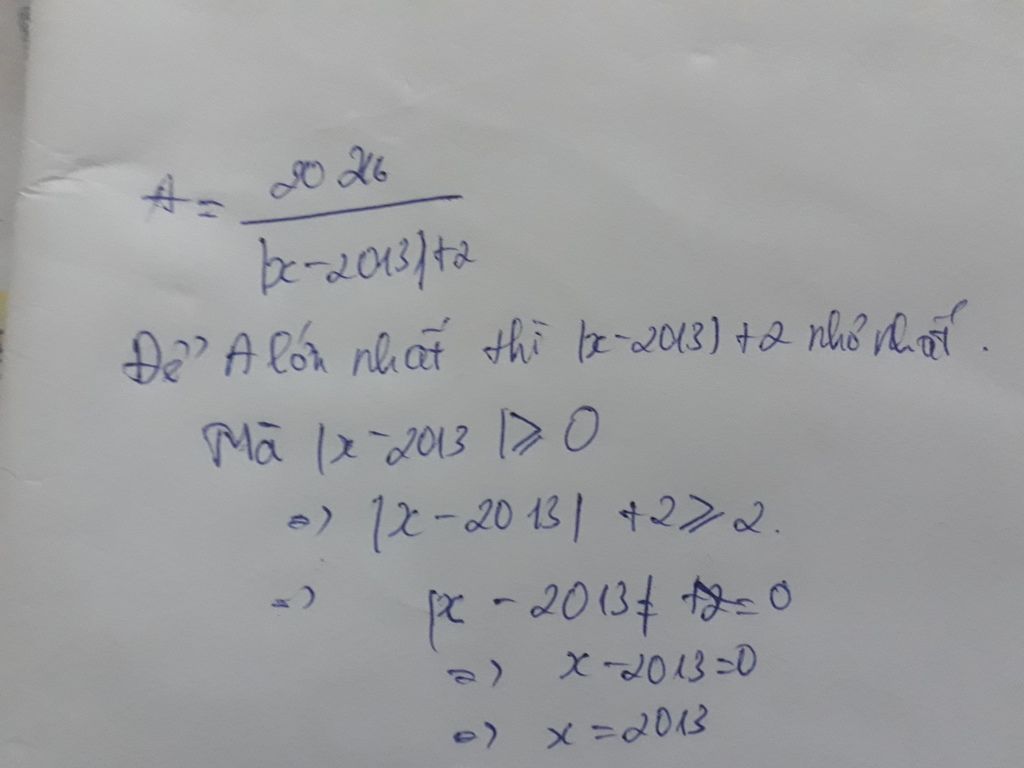 A = 2026
|x - 2013| + 2
Để A lớn nhất thì |x - 2013| + 2 nhỏ nhất.
Mà |x - 2013| ≥ 0
=> |x - 2013| + 2 ≥ 2.
=> |x - 2013| = 0
=> x - 2013 = 0
=> x = 2013